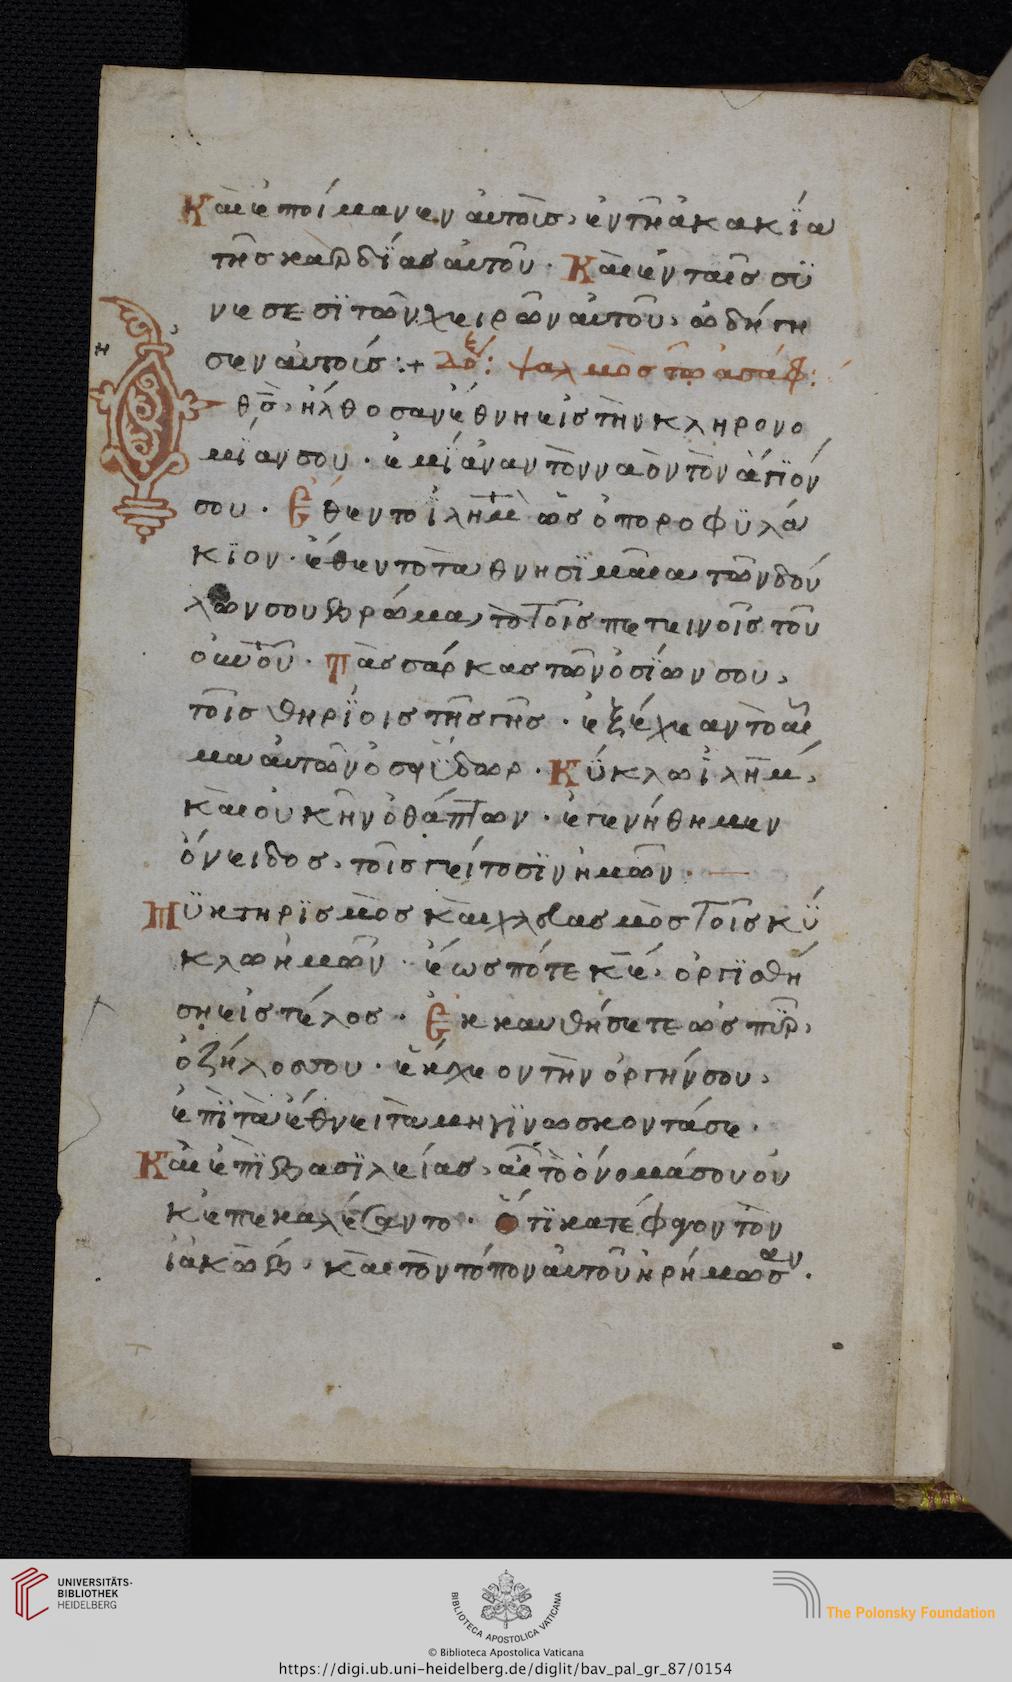 Καὶ ἐποίμανεν αὐτοὺς, ἐν τῇ ἀκακία
τῆς καρδίας αὐτοῦ · Καὶ ἐν ταῖς συ
νέσεσϊ τῶν χειρῶν αὐτοῦ, ὡδήγη
σεν αὐτούς :+ ψαλμὸς τῶ ἀσάφ :
Ὁ θς̄, ἤλθοσαν ἔθνη εἰς τὴν κληρονο
μίαν σου · ἐμίαναν τὸν ναὸν τὸν ἅγϊόν
σου · Ἔθεντο ϊλὴμ ὡς ὀποροφϋλά
κϊον · ἔθεντο τὰ θνησϊμαῖα τῶν δού
λων σου βρώματα τοῖς πετεινοῖς τοῦ
οὐνοῦ · Τὰς σάρκας τῶν ὁσίων σου,
τοῖς θηρΐοις τῆς γῆς · ἐξέχεαν τὸ αἷ
μα αὐτῶν ὡσεὶ ὕδωρ · Κύκλω ϊλὴμ,
καὶ οὐκ ἦν ὁ θάπτων · ἐγενήθημεν
ὄνειδος, τοῖς γείτοσϊν ἡμῶν ·
Μϋκτηρϊσμὸς καὶ χλευασμὸς τοῖς κύ
κλω ἡμῶν · ἕως πότε κε̄, ὀργϊσθή
ση εἰς τέλος · Ἐκκαυθήσεται ὡς πῦρ,
ὁ ζῆλος σου · ἔκχεον τὴν ὀργήν σου,
ἐπὶ τὰ ἔθνει τὰ μὴ γϊνωσκοντά σε ·
Καὶ ἐπὶ βασϊλείας, αἳ τὸ ὄνομά σου οὐ
κ ἐπεκαλέσαντο · Ὅτϊ κατέφαγον τὸν
ἰακὼβ, καὶ τὸν τόπον αὐτοῦ ἠρήμωσαν ·
UNIVERSITÄTS-
BIBLIOTHEK
HEIDELBERG
BIBLIOTECA APOSTOLICA VATICANA
The Polonsky Foundation
© Biblioteca Apostolica Vaticana
https://digi.ub.uni-heidelberg.de/diglit/bav_pal_gr_87/0154